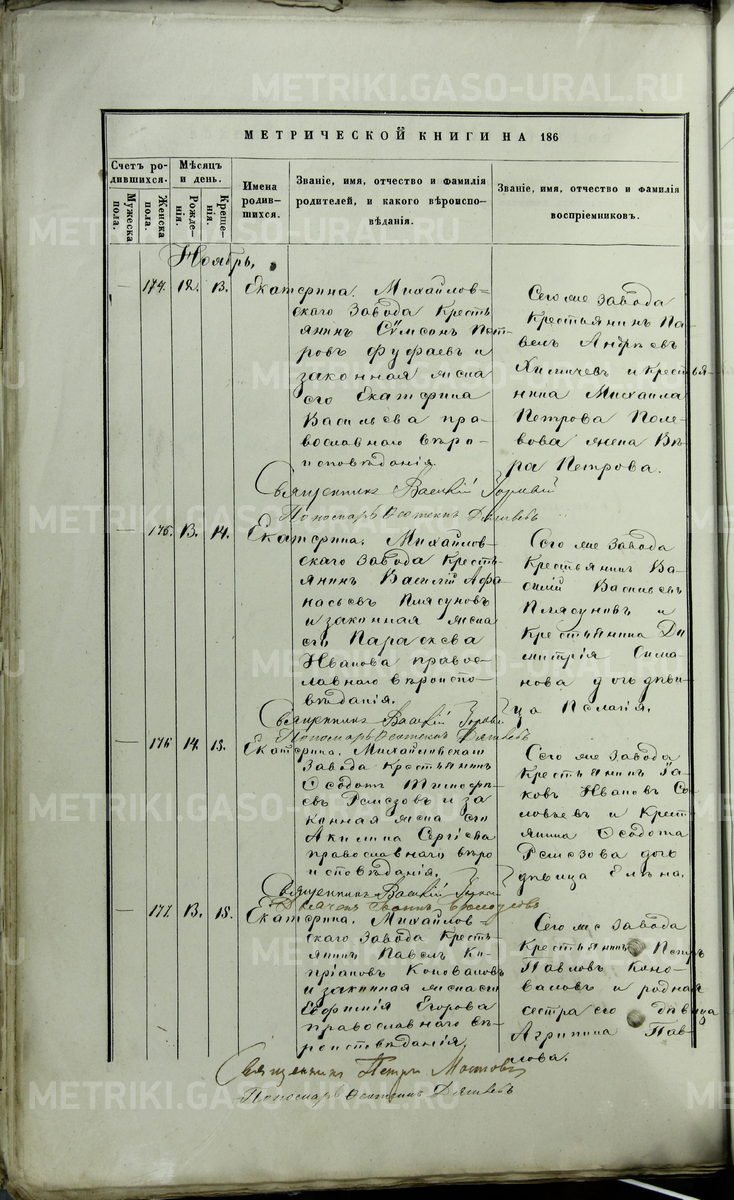 METRIKI.GASO-URAL.RU
МЕТРИЧЕСКОЙ КНИГИ НА 186
Счетъ родившихся.
Мужеска пола.
Женска пола.
Мѣсяцъ и день.
Рожденія.
Крещенія.
Имена родившихся.
Званіе, имя, отчество и фамилія
родителей, и какого вѣроиспо-
вѣданія.
Званіе, имя, отчество и фамилія
воспріемниковъ.
Ноябрь.
— 174. 12. 13. Екатерина. Михайлов-
скаго завода кресть
янинъ Сѵмеонъ Пет-
ровъ Фуфаевъ и
законная жена
его Екатерина
Васильева пра-
вославнаго вѣро-
исповѣданія.
Сего же завода
крестьянинъ Па-
велъ Андреевъ
и крестья-
нина Михаила
Петрова Поле-
вова жена Вѣ-
ра Петрова.
Священникъ Василій
Пономарь
— 175. 13. 14. Екатерина. Михайлов-
скаго завода кресть-
янинъ Василій Афа-
насьевъ Плясуновъ
и законная жена
его Параскева
Иванова право-
славнаго вѣроиспо-
вѣданія.
Сего же завода
крестьянинъ Ва-
силій Васильевъ
Плясуновъ и
крестьянина Ди
митрія Сима-
нова дочь дѣви-
ца Пелагія.
Священникъ Василій
Пономарь
— 176 14. 15. Екатерина. Михайловскаго
завода крестьянинъ
Ѳедотъ Тимофе-
евъ Ремезовъ и за
конная жена его
Акилина Сергіева
православнаго вѣро
исповѣданія.
Сего же завода
крестьянинъ Іа-
ковъ Ивановъ Со
ловьевъ и крест-
янина Ѳедота
Ремезова дочь
дѣвица Елена.
Священникъ Василій
— 177. 13. 15. Екатерина. Михайлов-
скаго завода кресть-
янинъ Павелъ Ки-
пріановъ Коноваловъ
и законная жена его
Евфимія Егорова
православнаго вѣ-
роисповѣданія.
Сего же завода
крестьянинъ Петръ
Павловъ Коно-
валовъ и родная
сестра его дѣвица
Агрипина Пав-
лова.
Священникъ Петръ
Пономарь